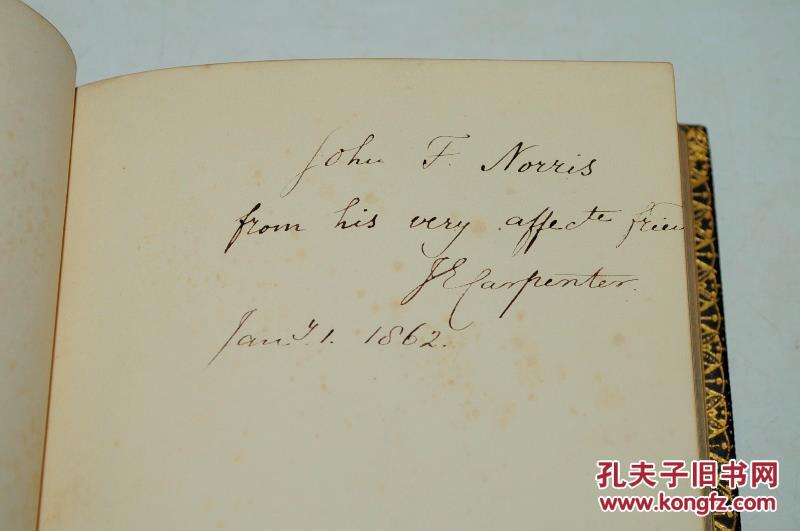 John F. Norris
from his very affecte frien
JE Carpenter.
Jany. 1. 1862.
孔夫子旧书网
www.kongfz.com